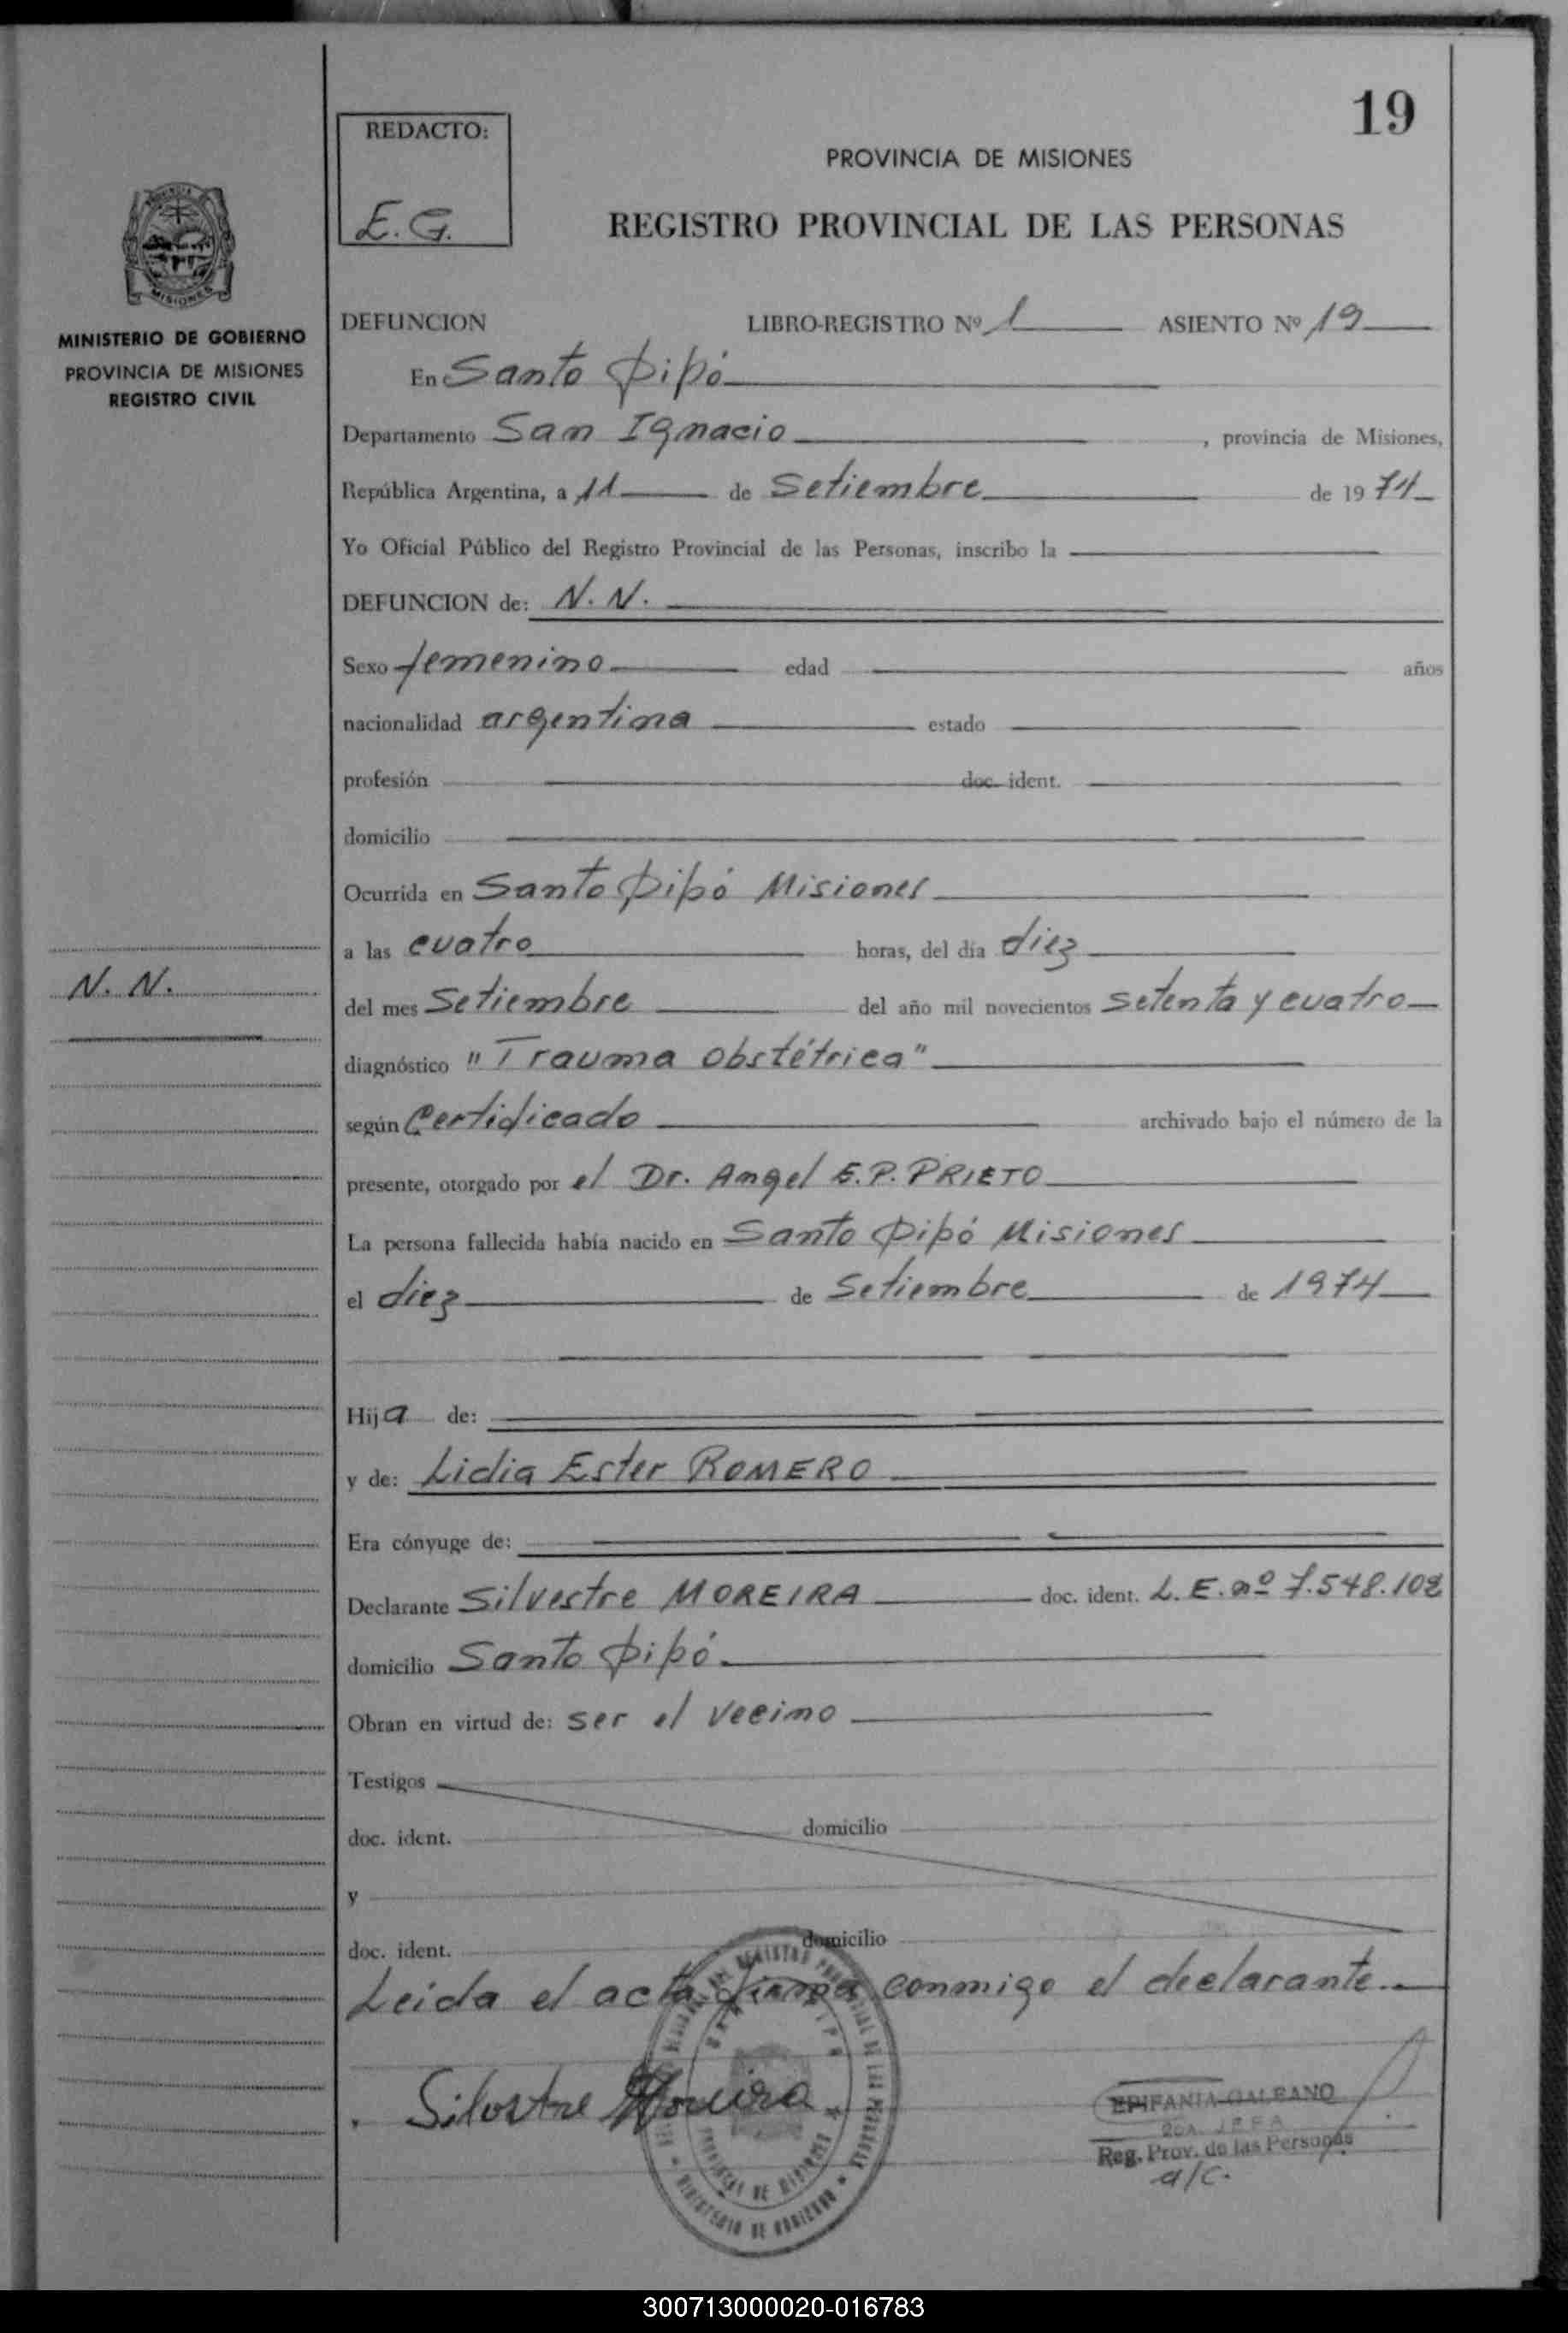 19
REDACTO:
E.G.
PROVINCIA DE MISIONES
REGISTRO PROVINCIAL DE LAS PERSONAS
MISIONES
MINISTERIO DE GOBIERNO
PROVINCIA DE MISIONES
REGISTRO CIVIL
DEFUNCION LIBRO-REGISTRO Nº 1 ASIENTO Nº 19
En Santo Pipó
Departamento San Ignacio , provincia de Misiones,
República Argentina, a 11 de Setiembre de 1974
Yo Oficial Público del Registro Provincial de las Personas, inscribo la
DEFUNCION de: N. N.
Sexo femenino edad años
nacionalidad argentina estado
profesión doc. ident.
domicilio
Ocurrida en Santo Pipó Misiones
a las cuatro horas, del día diez
N. N.
del mes Setiembre del año mil novecientos setenta y cuatro
diagnóstico "Trauma obstétrica"
según Certificado archivado bajo el número de la
presente, otorgado por el Dr. Angel E.P. PRIETO
La persona fallecida había nacido en Santo Pipó Misiones
el diez de Setiembre de 1974
Hija de:
y de: Lidia Ester ROMERO
Era cónyuge de:
Declarante Silvestre MOREIRA doc. ident. L.E. nº 7.548.102
domicilio Santo Pipó.
Obran en virtud de: ser el vecino
Testigos
doc. ident. domicilio
y
doc. ident. domicilio
Leida el acta firma conmigo el declarante.
Silvestre Moreira
EPIFANIA GALEANO
JEFA
Reg. Prov. de las Personas
a/c.
PROVINCIA DE MISIONES
MINISTERIO DE GOBIERNO
300713000020-016783